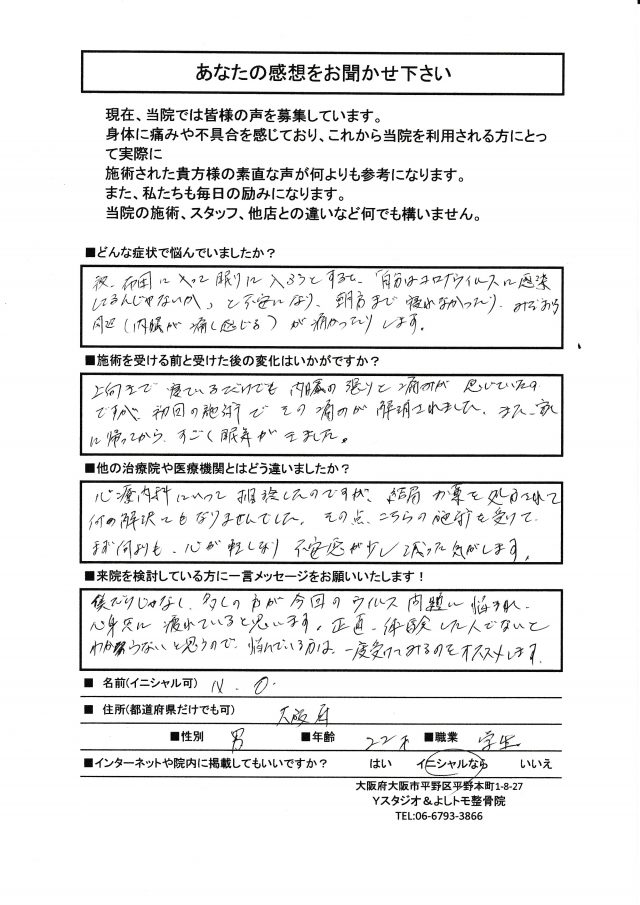 あなたの感想をお聞かせ下さい
現在、当院では皆様の声を募集しています。
身体に痛みや不具合を感じており、これから当院を利用される方にとっ
て実際に
施術された貴方様の素直な声が何よりも参考になります。
また、私たちも毎日の励みになります。
当院の施術、スタッフ、他店との違いなど何でも構いません。
■どんな症状で悩んでいましたか?
夜、布団に入って眠りに入ろうとすると、「自分はコロナウイルスに感染
してるんじゃないか」と不安になり、朝方まで寝れなかったり、みぞおち
周辺(内臓が痛く感じる)が痛かったりします。
■施術を受ける前と受けた後の変化はいかがですか?
上向きで寝ているだけでも内臓の張りと痛みが感じていたの
ですが、初回の施術でその痛みが解消されました。また、家
に帰ってから、すごく眠気がきました。
■他の治療院や医療機関とはどう違いましたか?
心療内科にいって相談したのですが、結局お薬を処方されて
何の解決にもなりませんでした。その点、こちらの施術を受けて、
まず何よりも、心が軽くなり不安感が少し減った気がします。
■来院を検討している方に一言メッセージをお願いいたします!
僕だけじゃなく、多くの方が今回のウイルス問題に悩まれ、
心身共に疲れていると思います。正直、体験した人でないと
わからないと思うので、悩んでいる方は、一度受けてみるのをオススメします。
■ 名前(イニシャル可) N.O.
■ 住所(都道府県だけでも可) 大阪府
■性別 男 ■年齢 22才 ■職業 学生
■インターネットや院内に掲載してもいいですか? はい イニシャルなら いいえ
大阪府大阪市平野区平野本町1-8-27
Yスタジオ&よしトモ整骨院
TEL:06-6793-3866